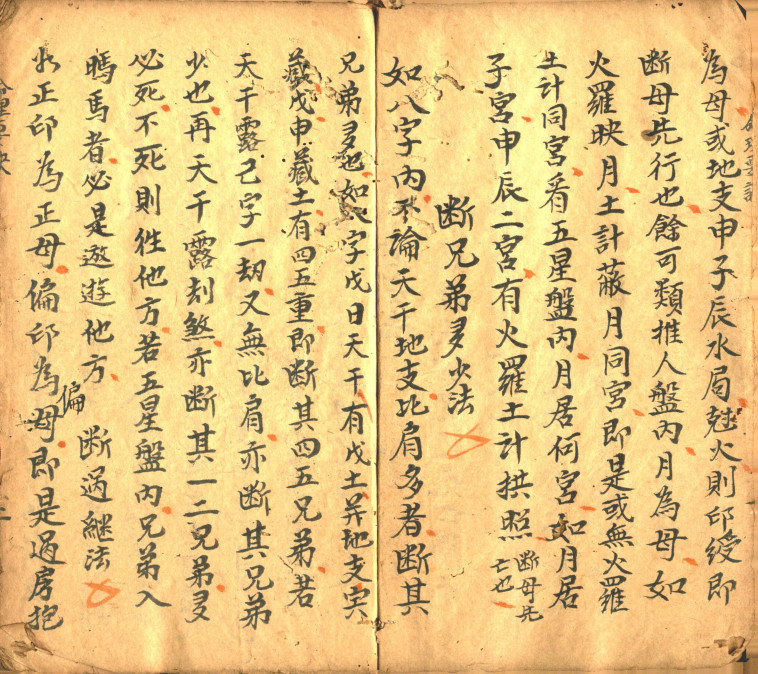 為母或地支申子辰水局尅火則印绶即
断母先行也餘可類推人盤内月為母如
火羅映月土計蔽月同宮即是或無火羅
土計同宮看五星盤内月居何宮如月居
子宮申辰二宮有火羅土計拱照断母先亡也
断兄弟多少法
如八字内不論天干地支比肩多者断其
兄弟多也如八字戊日天干有戊土并地支寅
藏戊申藏土有四五重即断其四五兄弟若
天干露己字一劫又無比肩亦断其兄弟
少也再天干露刦煞亦断其一二兄弟多
必死不死則徃他方若五星盤内兄弟入
駡馬者必是遨遊他方
断過継法
如正印為正母偏印為偏母即是過房抱